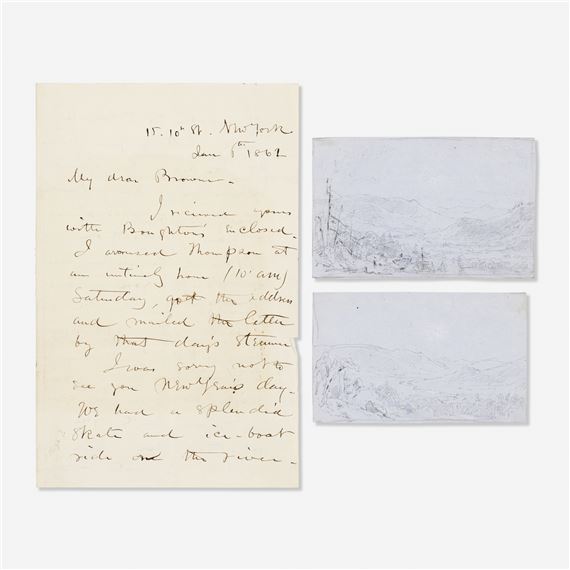 15. 10th St. New York
Jan 6th 1862
My dear Brownie -
I received yours
with Boughton's enclosed.
I aroused Thompson at
an untimely hour (10 am)
Saturday, got the address
and mailed the letter
by that day's steamer
I was sorry not to
see you New Year's day.
We had a splendid
skate and ice-boat
ride on the river -